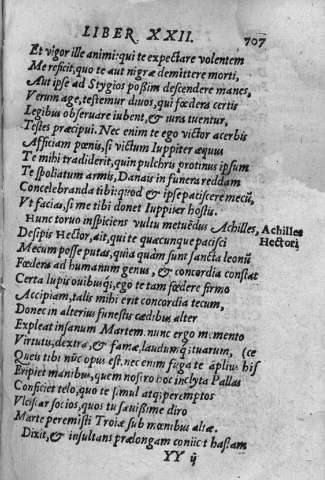 LIBER XXII. 707
Et vigor ille animi: qui te expectare volentem
Me reficit, quo te aut nigræ demittere morti,
Aut ipse ad Stygios poßim descendere manes,
Verum age, testemur diuos, qui fœdera certis
Legibus obseruare iubent, & iura tuentur,
Testes præcipui. Nec enim te ego victor acerbis
Afficiam pœnis, si victum Iuppiter æquus
Te mihi tradiderit, quin pulchris protinus ipsum
Te spoliatum armis, Danais in funera reddam
Concelebranda tibi: quod & ipse patiscere mecū,
Vt facias, si me tibi donet Iuppiter hostis.
Hunc toruo inspiciens vultu metuēdus Achilles,
Achilles
Hectori
Desipis Hector, ait, qui te quæcunque pacisci
Mecum posse putas, quia quàm sunt sancta leonū
Fœdera ad humanum genus, & concordia constāt
Certa lupis ouibusq́;, ego te tam fœdere firmo
Accipiam, talis mihi erit concordia tecum,
Donec in alterius funestus cædibus alter
Expleat insanum Martem. nunc ergo memento
Virtutu, dextræ, & famæ, laudumq́; tuarum, (ce
Queis tibi nūc opus est. nec enim fuga te āplius his
Eripiet manibus, quem nostro hoc inclyta Pallas
Conficiet telo, quo te simul atq; peremptos
Vlciscar socios, quos tu sæuißime diro
Marte peremisti Troiæ sub mœnibus altæ.
Dixit, & insultans prælongam coniicit hastam
YY ij